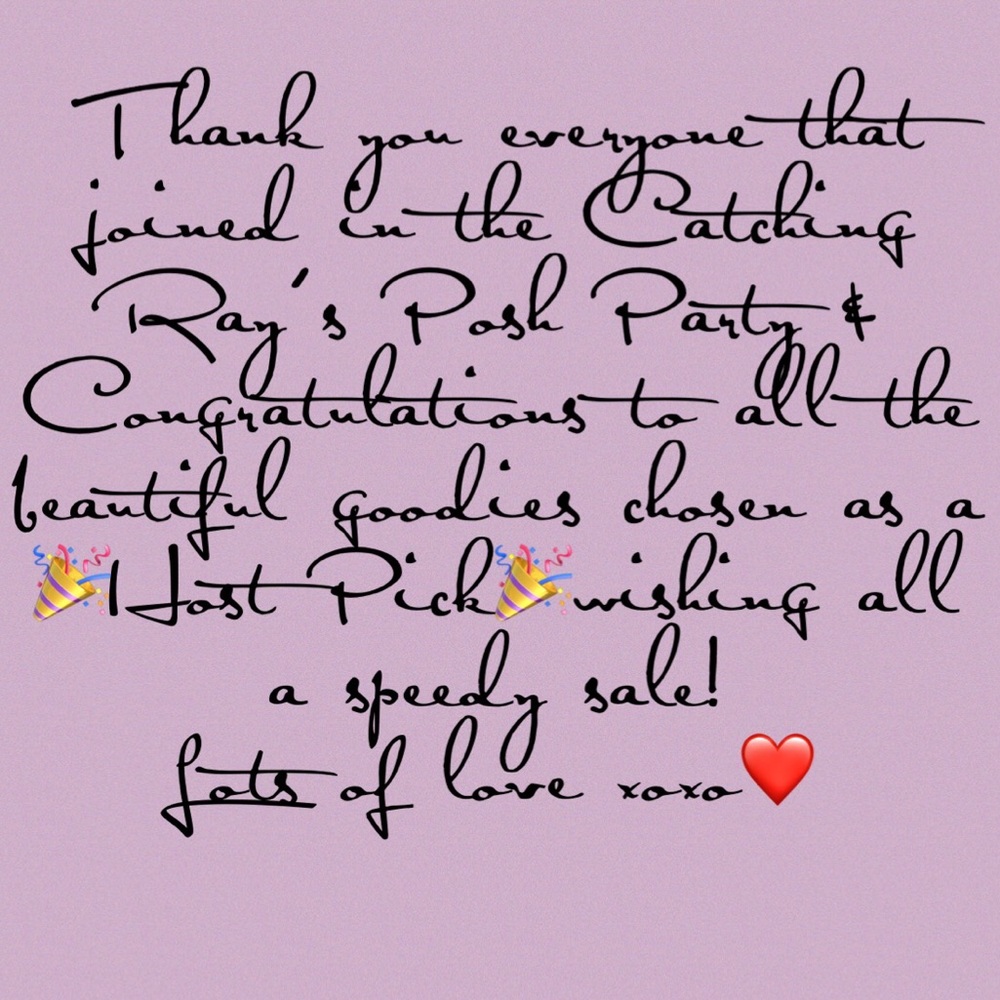 Thank you everyone that
joined in the Catching
Ray's Posh Party &
Congratulations to all the
beautiful goodies chosen as a
🎉Host Pick🎉wishing all
a speedy sale!
Lots of love xoxo❤️